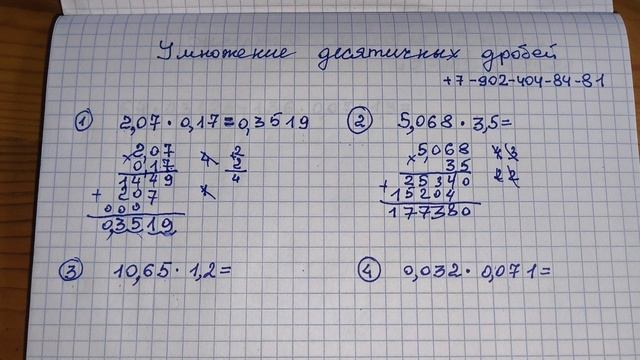 Умножение десятичных дробей
+7-902-404-84-81
① 2,07 · 0,17 = 0,3519
② 5,068 · 3,5 =
× 2,07
0,17
1449
+ 207
000
0,3519
4 2
2
4
× 5,068
3,5
+ 25340
15204
177380
③ 10,65 · 1,2 =
④ 0,032 · 0,071 =